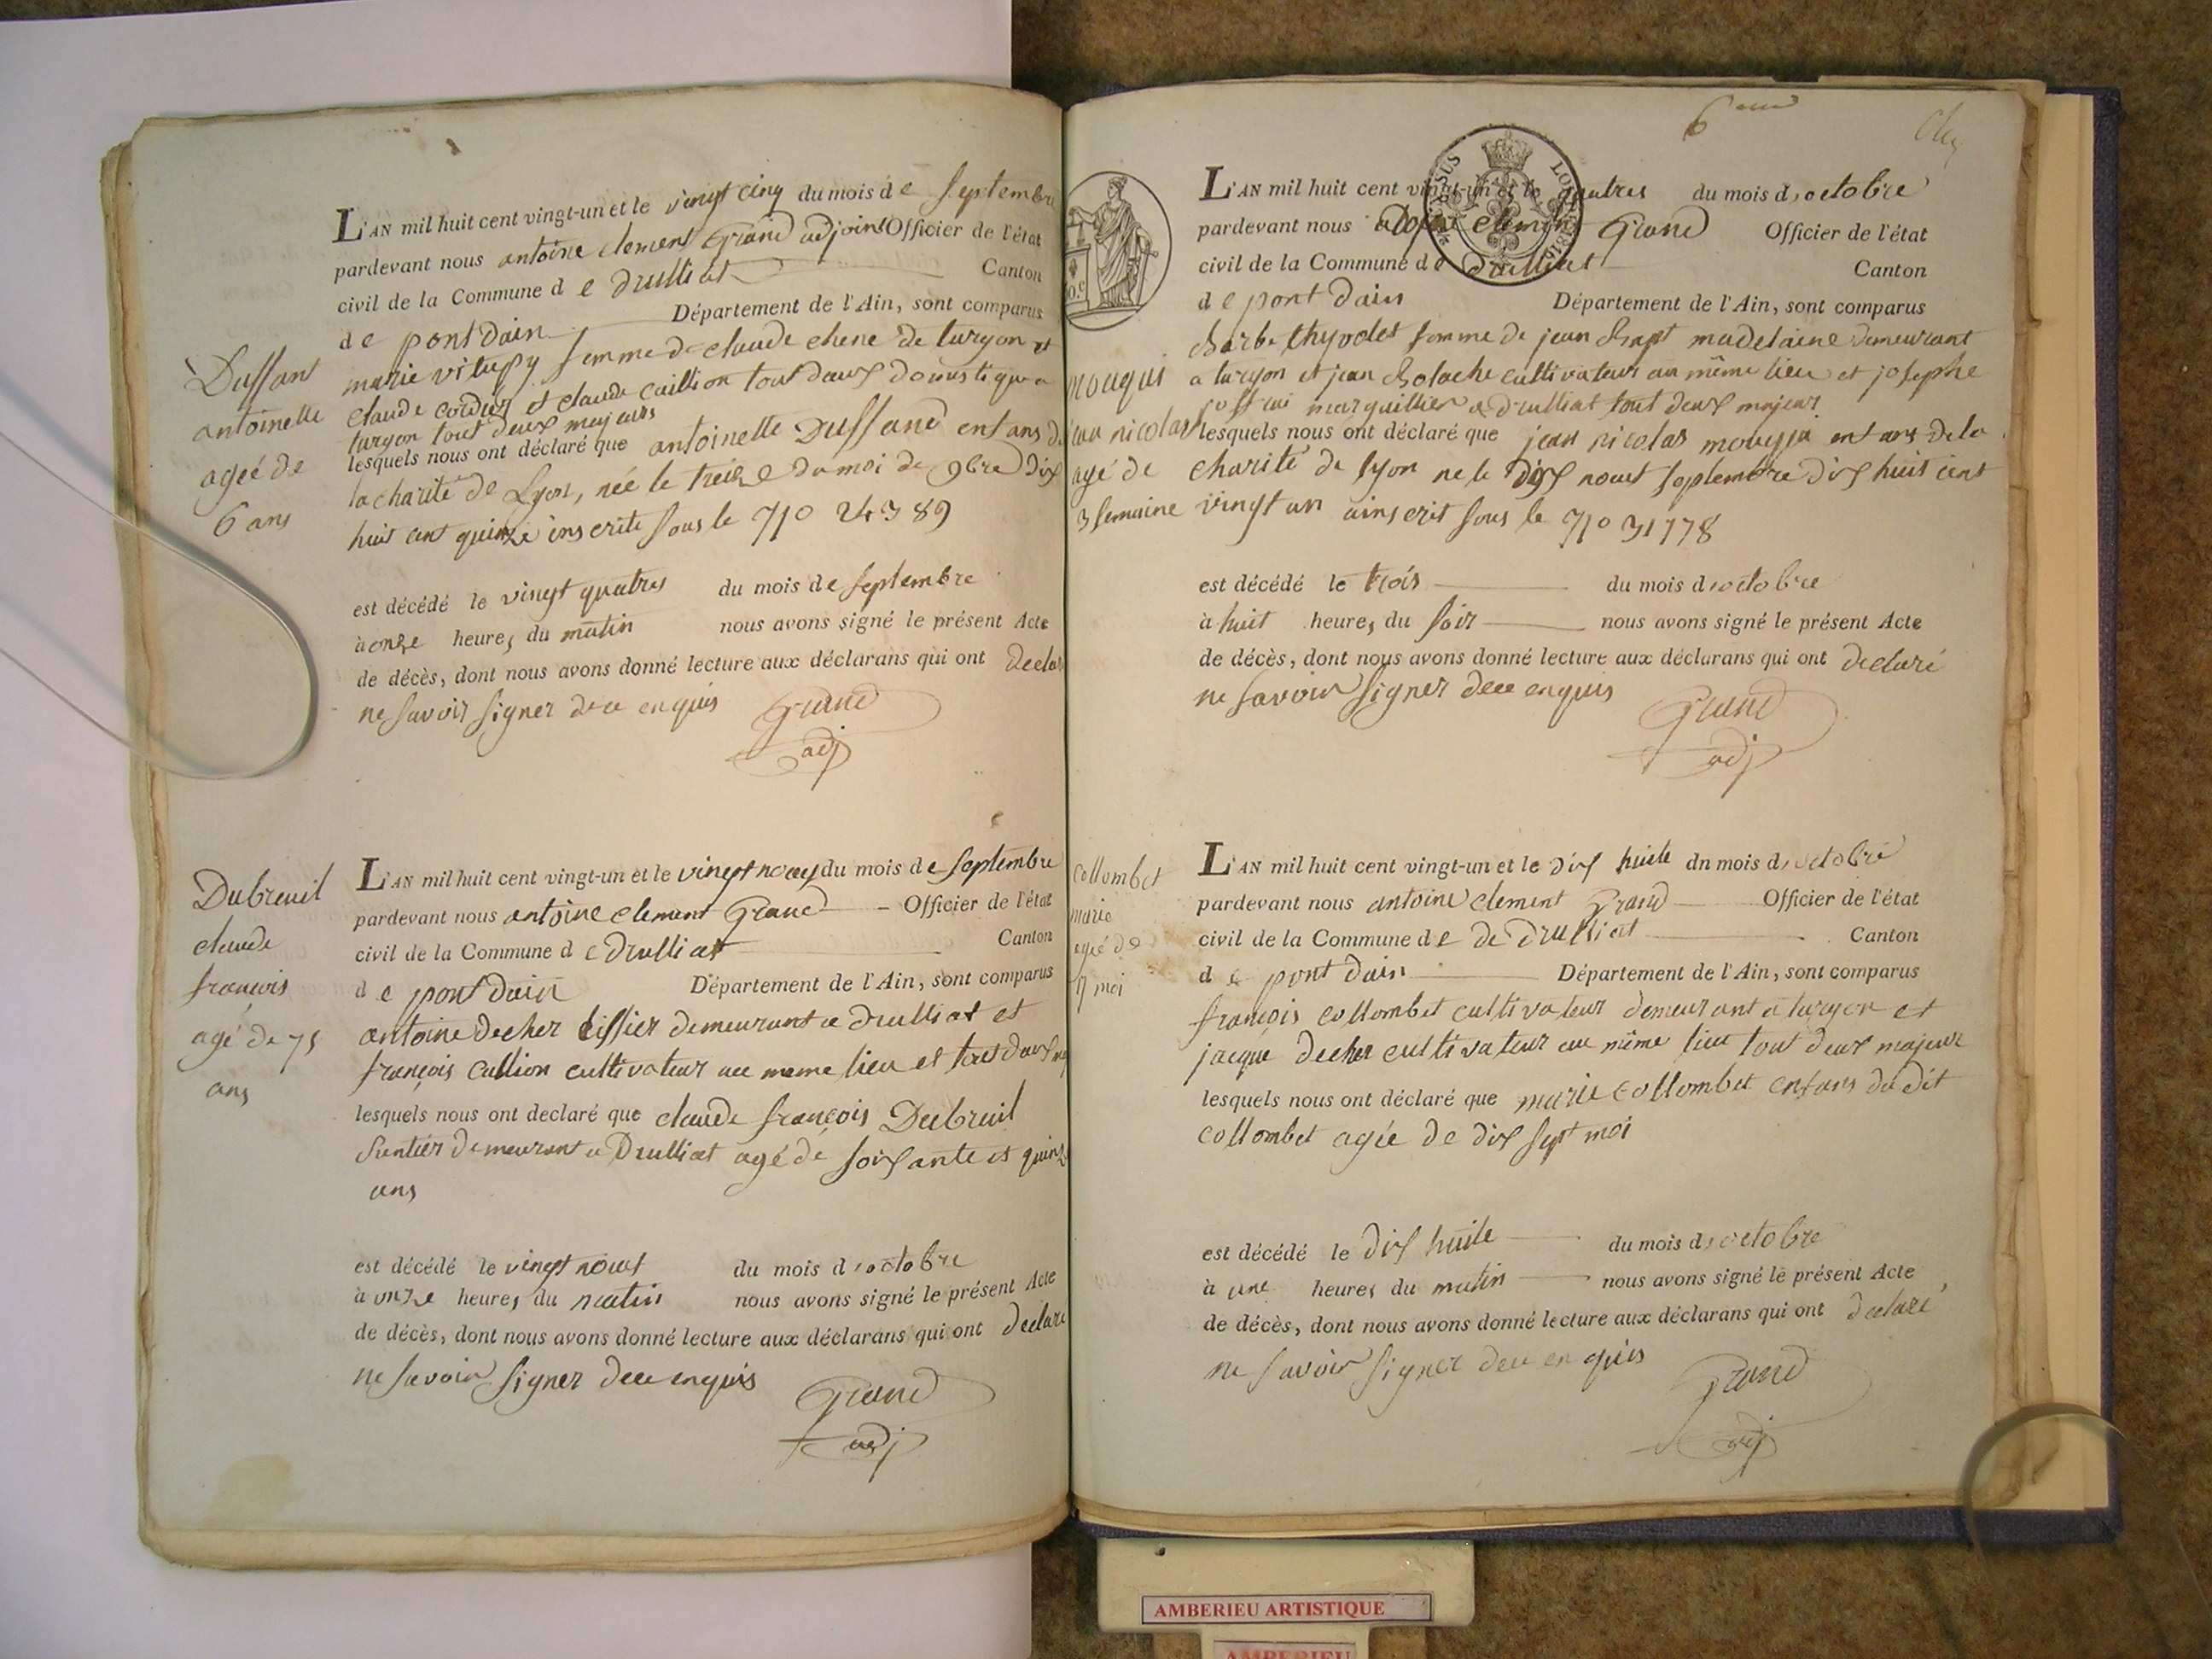 L'AN mil huit cent vingt-un et le vingt cinq du mois de septembre
pardevant nous antoine clement Grand adjoint Officier de l'état
civil de la Commune de Drulliat Canton
de pont Dain Département de l'Ain, sont comparus
marie vitupy femme de claude chene de turgon et
claude corduz et claude caillion tout deux domestique a
turgon tout deux majeurs
lesquels nous ont déclaré que antoinette Duffand enfans de
la charité de Lyon, née le treize du moi de 9bre dix
huit cent quinze inscrite sous le 710 24389
est décédé le vingt quatres du mois de septembre
à onze heures du matin nous avons signé le présent Acte
de décès, dont nous avons donné lecture aux déclarans qui ont declaré
ne savoir signer dece enquis Grand
adj
Duffant
antoinette
ageé de
6 ans
L'AN mil huit cent vingt-un et le vingt nouf du mois de septembre
pardevant nous antoine clement Grand Officier de l'état
civil de la Commune de Drulliat Canton
de pont Dain Département de l'Ain, sont comparus
antoine decher tissier demeurant a drulliat et
françois Cullion cultivateur au meme lieu et tout deux
lesquels nous ont declaré que claude françois Dubreuil
demeurant a Drulliat agé de soixante et quinze
ans
est décédé le vingt nouf du mois d'octobre
à onze heures du matin nous avons signé le présent Acte
de décès, dont nous avons donné lecture aux déclarans qui ont declaré
ne savoir signer dece enquis Grand
adj
Dubreuil
claude
françois
agé de 75
ans
L'AN mil huit cent vingt-un et le quatres du mois d'octobre
pardevant nous clement Grand Officier de l'état
civil de la Commune de drulliat Canton
de pont Dain Département de l'Ain, sont comparus
thyvolet femme de jean madelaine demeurant
a turgon et jean Bolache cultivateur au même lieu et josephe
marguillier a drulliat tout deux majeur
lesquels nous ont déclaré que jean nicolas enfans de la
charité de lyon ne le dix nouf septembre dix huit cent
vingt un ainscrit sous le 710 31778
est décédé le trois du mois d'octobre
à huit heures du soir nous avons signé le présent Acte
de décès, dont nous avons donné lecture aux déclarans qui ont declaré
ne savoir signer dece enquis Grand
adj
mouqui
jean nicolas
agé de
3 semaine
L'AN mil huit cent vingt-un et le dix huite du mois d'octobre
pardevant nous antoine clement Grand Officier de l'état
civil de la Commune de de Drulliat Canton
de pont dain Département de l'Ain, sont comparus
françois collombet cultivateur demeurant a turgon et
jacque decher cultivateur au même lieu tout deux majeur
lesquels nous ont déclaré que marie collombet enfans du dit
collombet agée de dix sept moi
est décédé le dix huite du mois d'octobre
à une heures du matin nous avons signé le présent Acte
de décès, dont nous avons donné lecture aux déclarans qui ont declaré
ne savoir signer dece enquis Grand
adj
collombet
marie
agée de
17 moi
AMBERIEU ARTISTIQUE
AMBERIEU